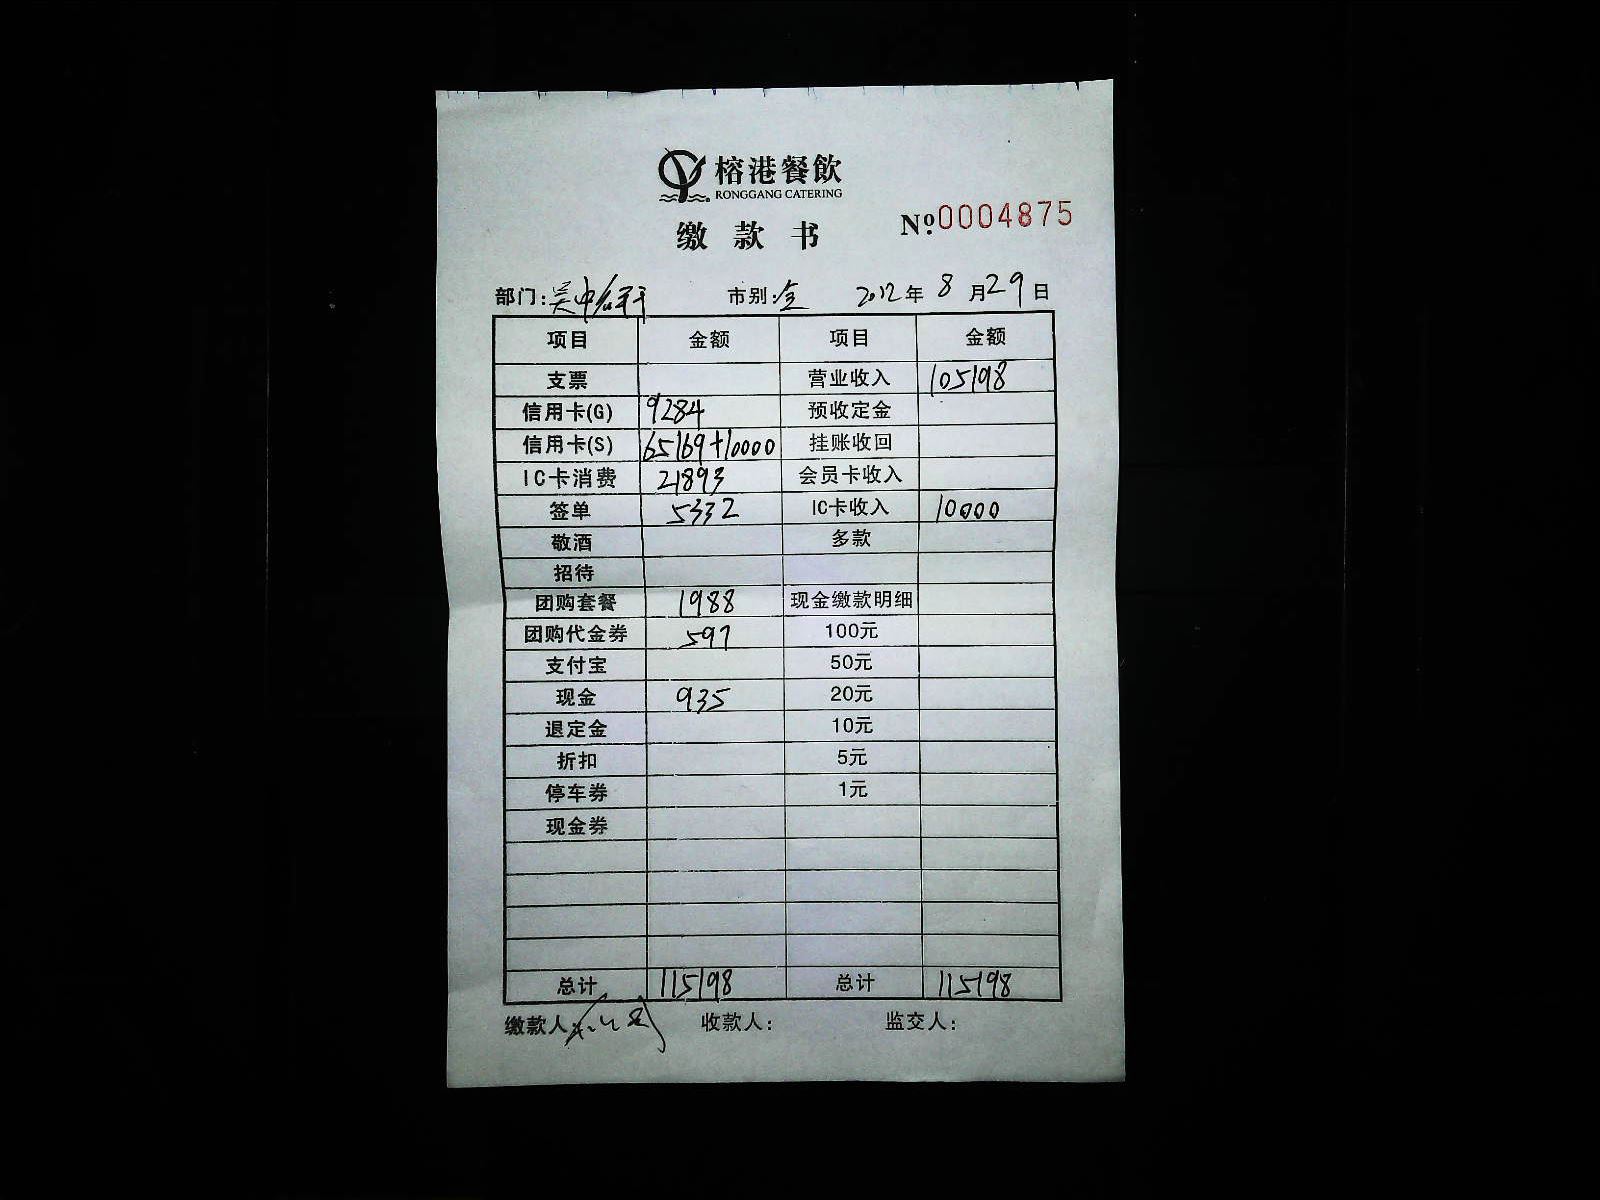 榕港餐飲
RONGGANG CATERING
缴款书
Nº 0004875
部门: 吴中 市别: 全 2012年 8月29日
项目 金额 项目 金额
支票 营业收入 105198
信用卡(G) 9284 预收定金
信用卡(S) 65169+10000 挂账收回
IC卡消费 21893 会员卡收入
签单 5332 IC卡收入 10000
敬酒 多款
招待
团购套餐 1988 现金缴款明细
团购代金券 597 100元
支付宝 50元
现金 935 20元
退定金 10元
折扣 5元
停车券 1元
现金券
总计 115198 总计 115198
缴款人: 收款人: 监交人: